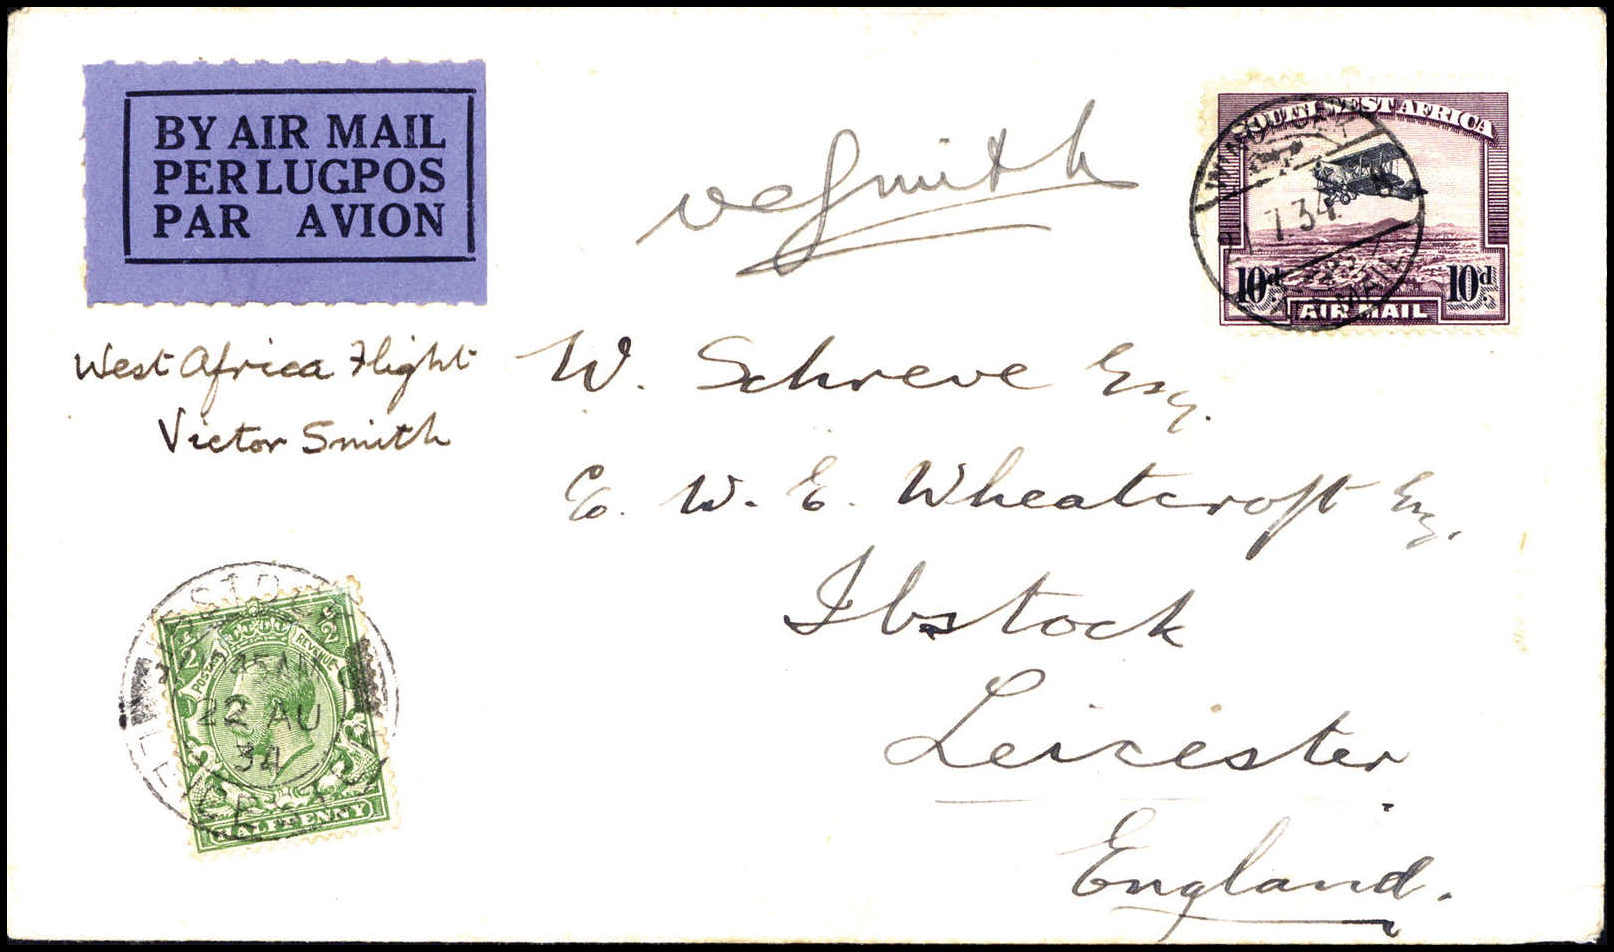 BY AIR MAIL
PER LUGPOS
PAR AVION
West Africa Flight
Victor Smith
VCSmith
SOUTH WEST AFRICA
10d 10d
AIR MAIL
7.34
W. Schreve Esq.
W. E. Wheatcroft Esq.
Ibstock
Leicester
England.
½ ½
POSTAGE REVENUE
22 AU
34
HALFPENNY